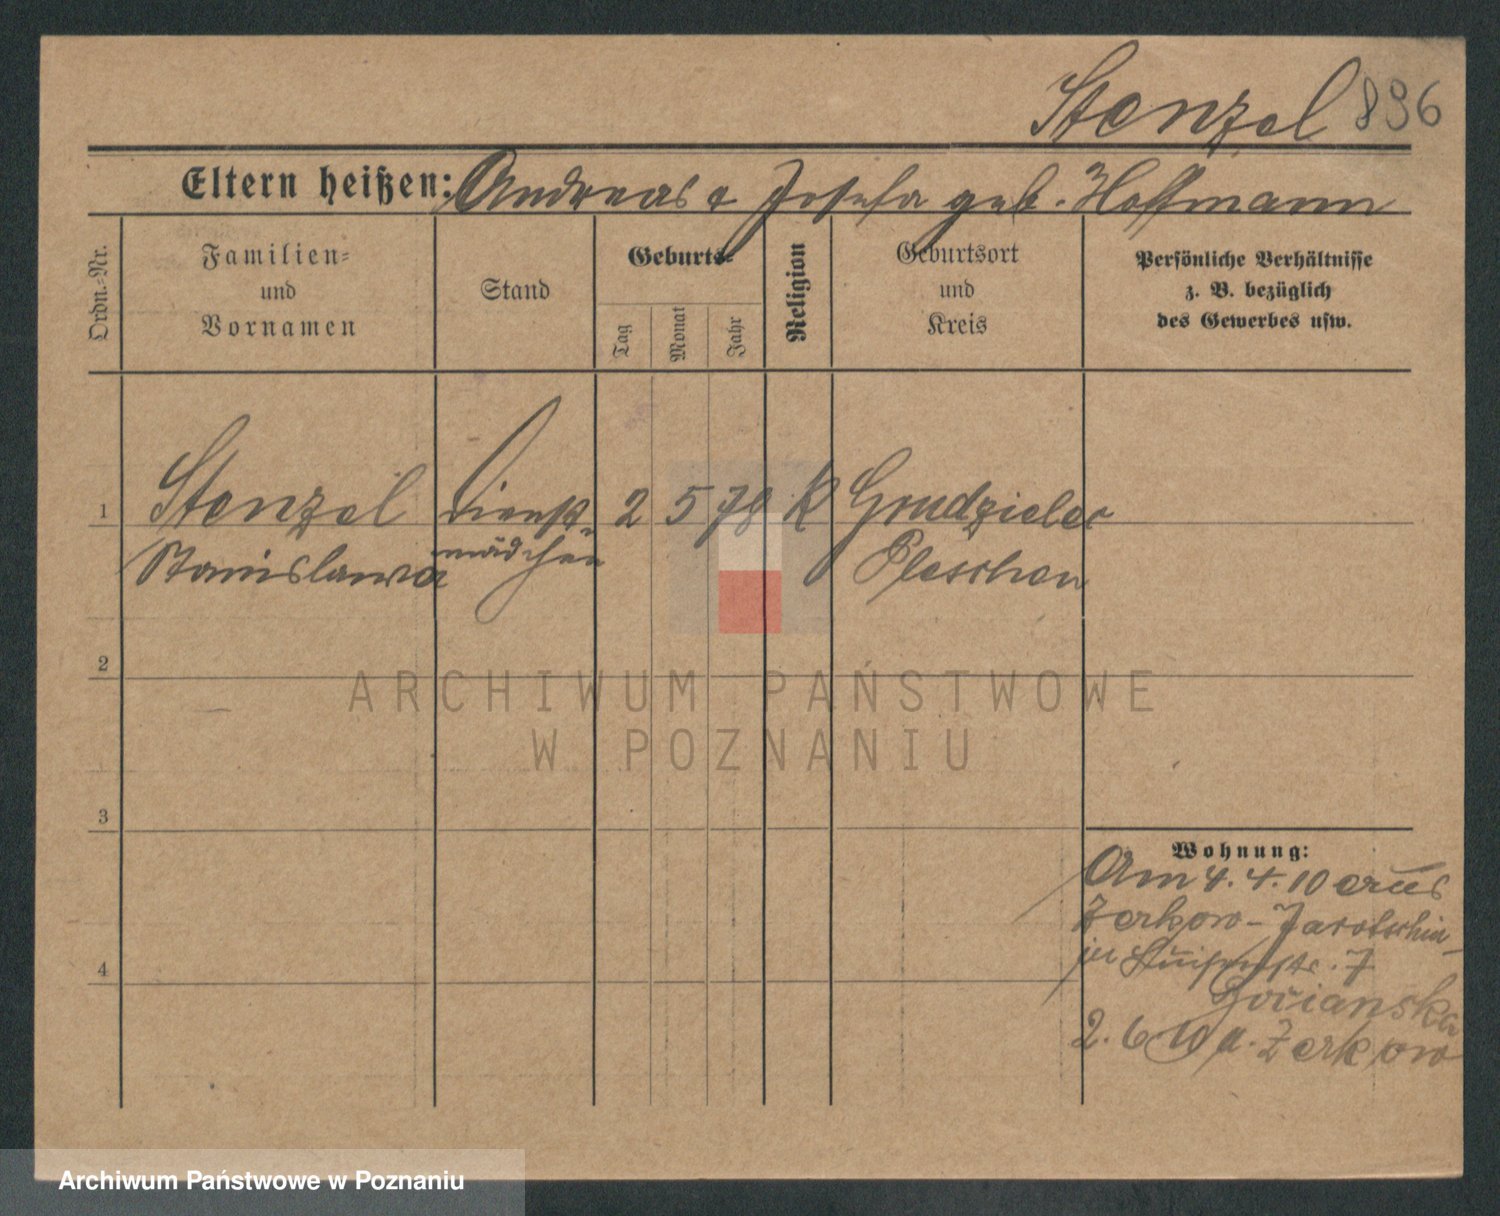 Stenzel 896
Eltern heißen: Andreas & Josefa geb. Hoffmann
Ordn.-Nr.
Familien-
und
Vornamen
Stand
Geburts-
Tag
Monat
Jahr
Religion
Geburtsort
und
Kreis
Persönliche Verhältnisse
z. B. bezüglich
des Gewerbes usw.
1 Stenzel Dienst- 2 5 78 K Grudzielec
Stanislawa mädchen Pleschen
2
3
4
Wohnung:
Am 4.4.10 aus
Zerkow-Jarotschin
zu Luisenstr. 7
2.6.10 n. Zerkow
ARCHIWUM PAŃSTWOWE
W POZNANIU
Archiwum Państwowe w Poznaniu